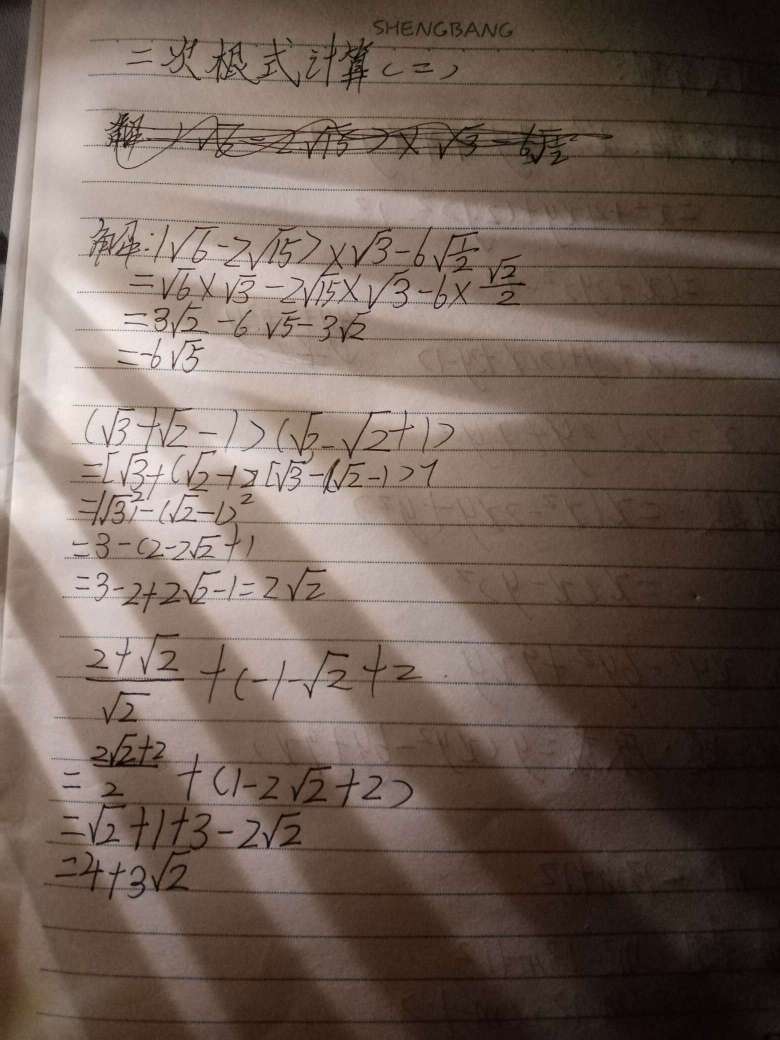 SHENGBANG
二次根式计算(二)
解:(√6-2√15)×√3-6√(1/2)
=√6×√3-2√15×√3-6×√2/2
=3√2-6√5-3√2
=-6√5
(√3+√2-1)(√3-√2+1)
=[√3+(√2-1)][√3-(√2-1)]
=(√3)²-(√2-1)²
=3-(2-2√2+1)
=3-2+2√2-1=2√2
(2+√2)/√2+(-1-√2+2
=(2√2+2)/2+(1-2√2+2)
=√2+1+3-2√2
=4+3√2